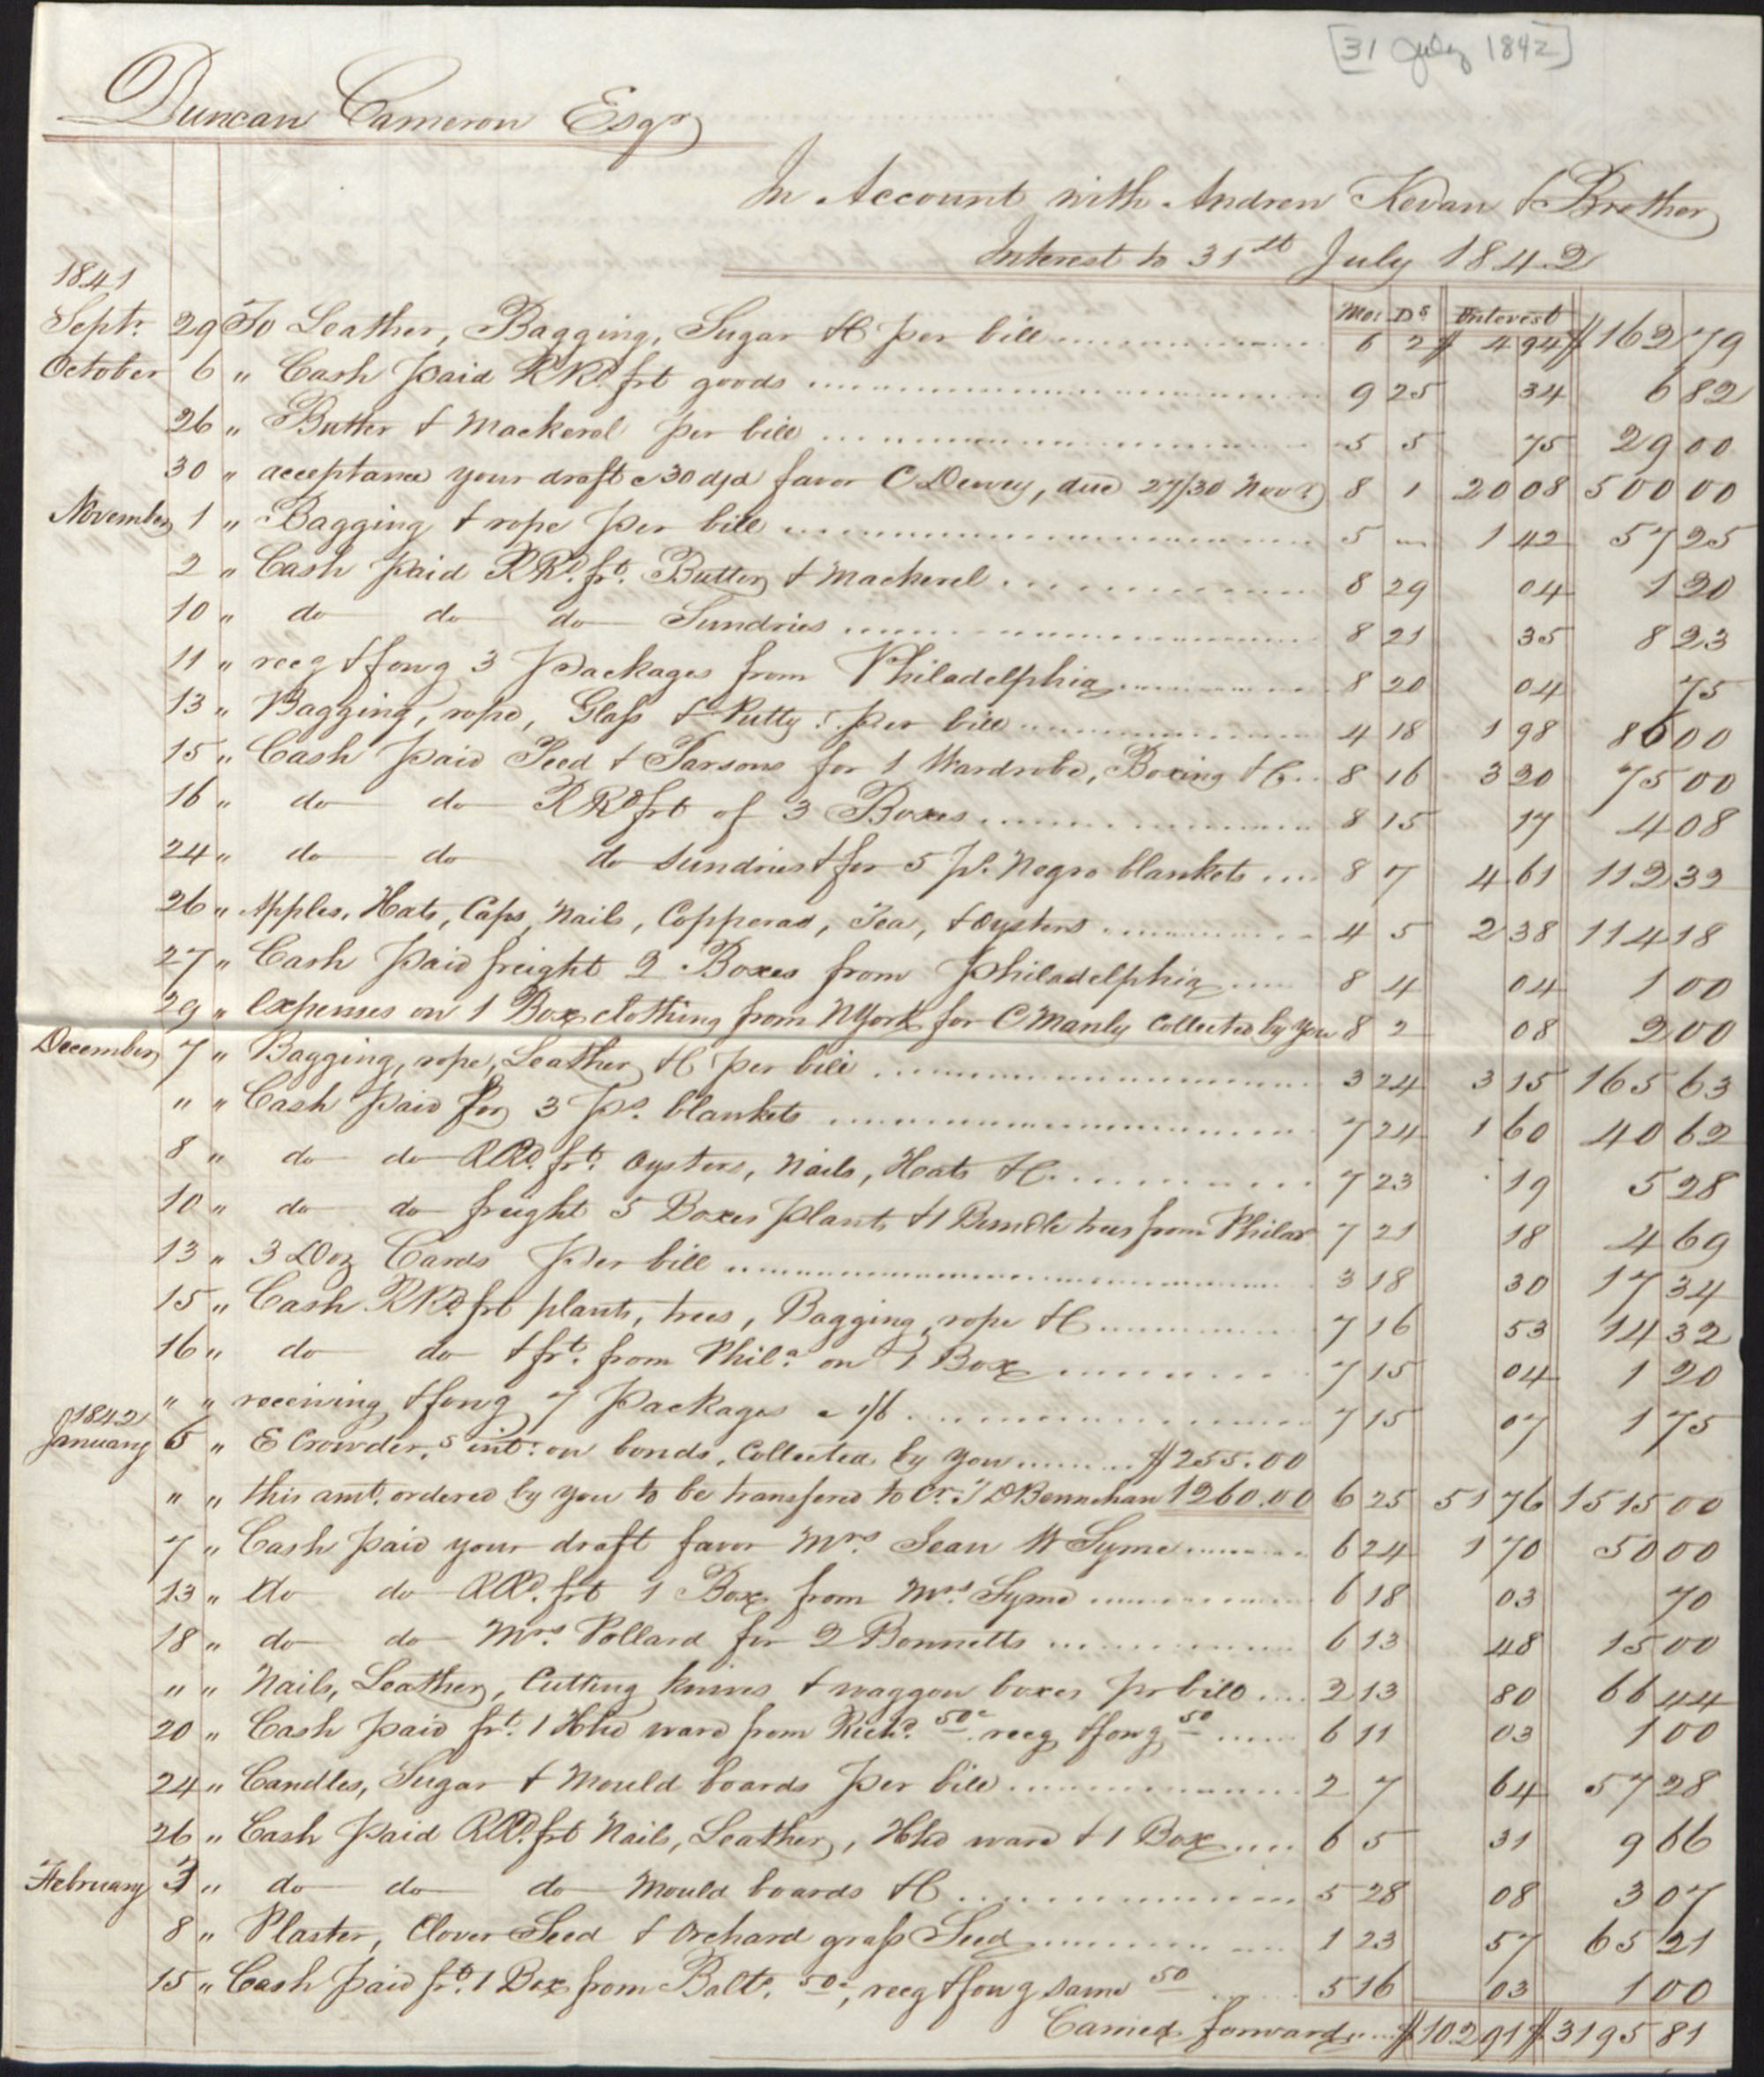 [31 July 1842]
Duncan Cameron Esqr
In Account with Andrew Kevan & Brother
Interest to 31st July 1842
1841 Mo: Ds Interest
Septr. 29 To Leather, Bagging, Sugar &c per bill 6 2 $ 4 94 $ 162 79
October 6 " Cash paid RRd. frt goods 9 25 34 6 82
26 " Butter & Mackerel per bill 5 5 75 29 00
30 " acceptance your draft @ 30 d/d favor C Dewey, due 27/30 Novr 8 1 20 08 500 00
November 1 " Bagging & rope per bill 5 — 1 42 57 25
2 " Cash paid RRd. frt. Butter & Mackerel 8 29 04 1 20
10 " do do do Sundries 8 21 35 8 23
11 " recg & forwg 3 Packages from Philadelphia 8 20 04 75
13 " Bagging, rope, Glass & Putty per bill 4 18 1 98 86 00
15 " Cash paid Peed & Parsons for 1 Wardrobe, Boxing &c 8 16 3 20 75 00
16 " do do RRd frt of 3 Boxes 8 15 17 4 08
24 " do do do Sundries & for 5 ps. Negro blankets 8 7 4 61 112 32
26 " Apples, Hats, Caps, Nails, Copperas, Tea, & Oysters 4 5 2 38 114 18
27 " Cash paid freight 2 Boxes from Philadelphia 8 4 04 1 00
29 " expenses on 1 Box clothing from NYork for C Manly collected by you 8 2 08 2 00
December 7 " Bagging, rope, Leather &c per bill 3 24 3 15 165 63
" " Cash paid for 3 Ps. blankets 7 24 1 60 40 62
8 " do do RRd. frt. Oysters, Nails, Hats &c 7 23 19 5 28
10 " do do freight 5 Boxes Plants & 1 Bundle trees from Philaa 7 21 18 4 69
13 " 3 Doz Cards per bill 3 18 30 17 34
15 " Cash RRd. frt plants, trees, Bagging, rope &c 7 16 53 14 32
16 " do do & frt. from Phila. on 1 Box 7 15 04 1 20
" " receiving & forwg 7 Packages @ 1/6 7 15 07 1 75
1842
January 5 " E Crowder,s int: on bonds, collected by you $255.00
" " this amt. ordered by you to be transfered to Cr. T D Bennehan 1260.00 6 25 51 76 1515 00
7 " Cash paid your draft favor Mrs. Jean W Syme 6 24 1 70 50 00
13 " do do RRd. frt 1 Box from Mrs Syme 6 18 03 70
18 " do do Mrs. Pollard for 2 Bonnetts 6 13 48 15 00
" " Nails, Leather, Cutting knives & waggon boxes pr bill 2 13 80 66 44
20 " Cash paid frt. 1 Hhd ware from Richd. 50c. recg & forwg 50 6 11 03 1 00
24 " Candles, Sugar & Mould boards per bill 2 7 64 57 28
26 " Cash paid RRd. frt Nails, Leather, Hhd ware & 1 Box 6 5 31 9 66
February 3 " do do do Mould boards &c 5 28 08 3 07
8 " Plaster, Clover Seed & Orchard grass Seed 1 23 57 65 21
15 " Cash paid frt. 1 Box from Balto. 50c, recg & forwg same 50 5 16 03 1 00
Carried forward $ 102 91 $ 3195 81